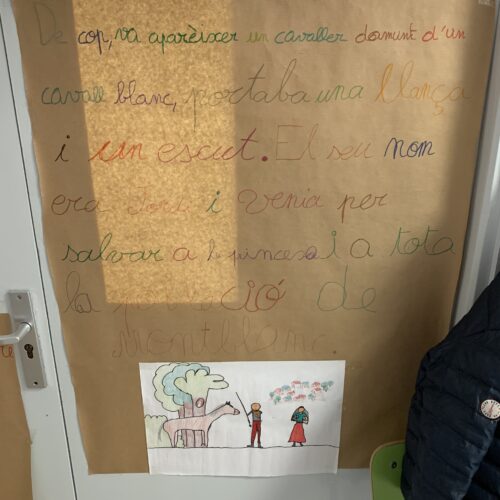 De cop, va aparèixer un cavaller damunt d'un
cavall blanc, portaba una llança
i un escut. El seu nom
era Jordi i venia per
salvar a la princesa i a tota
la població de
Montblanc.